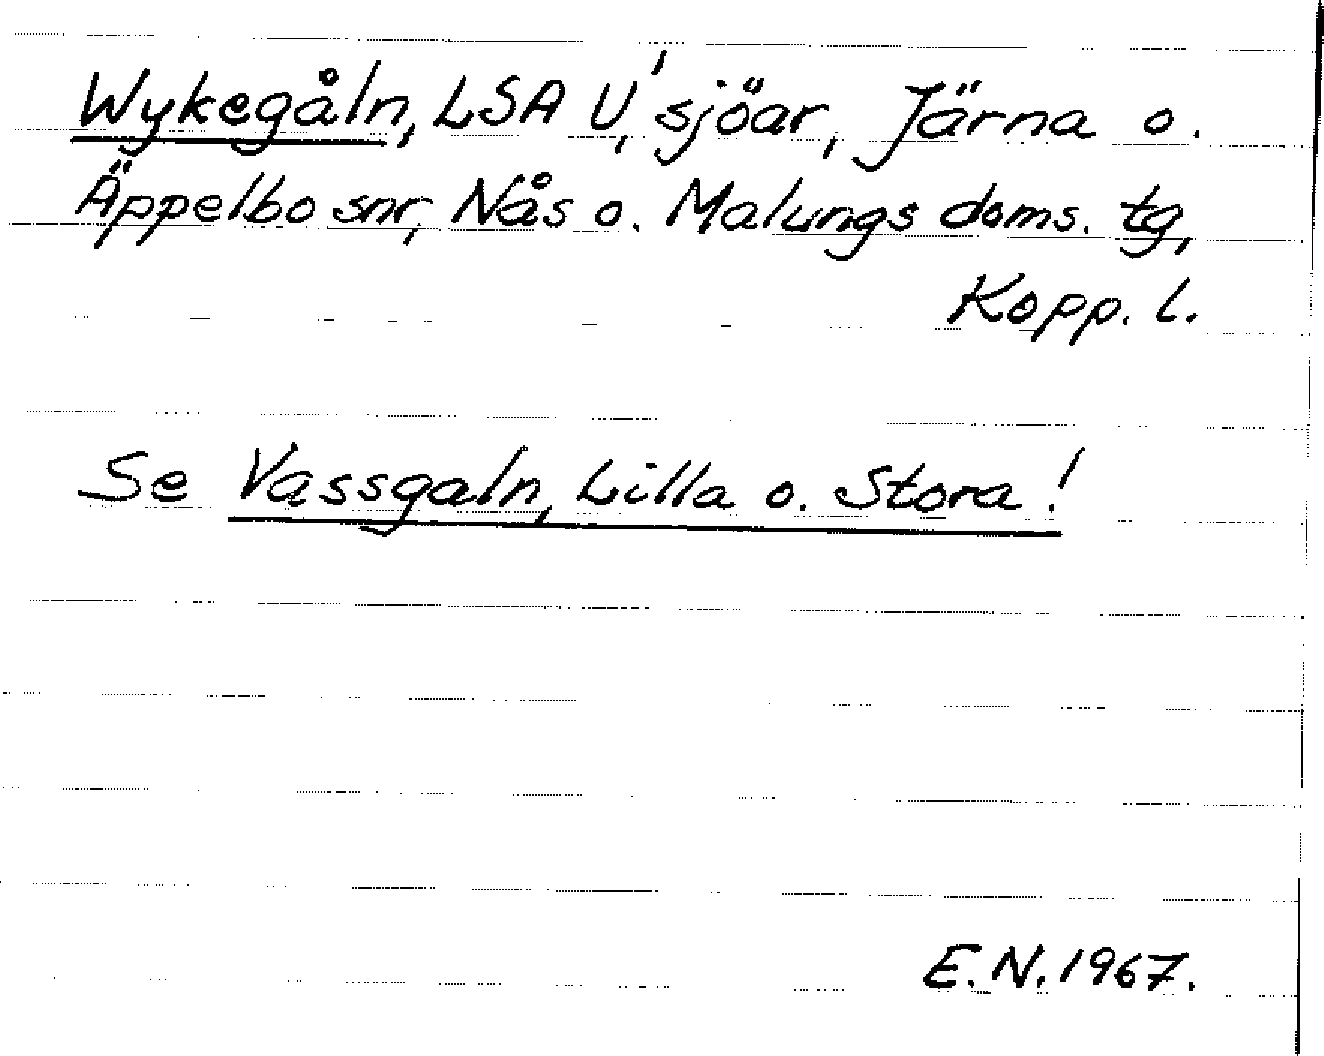 Wykegåln, LSA U, sjöar, Järna o.
Äppelbo snr, Nås o. Malungs doms. tg,
Kopp. l.
Se Vassgaln, Lilla o. Stora!
E.N. 1967.